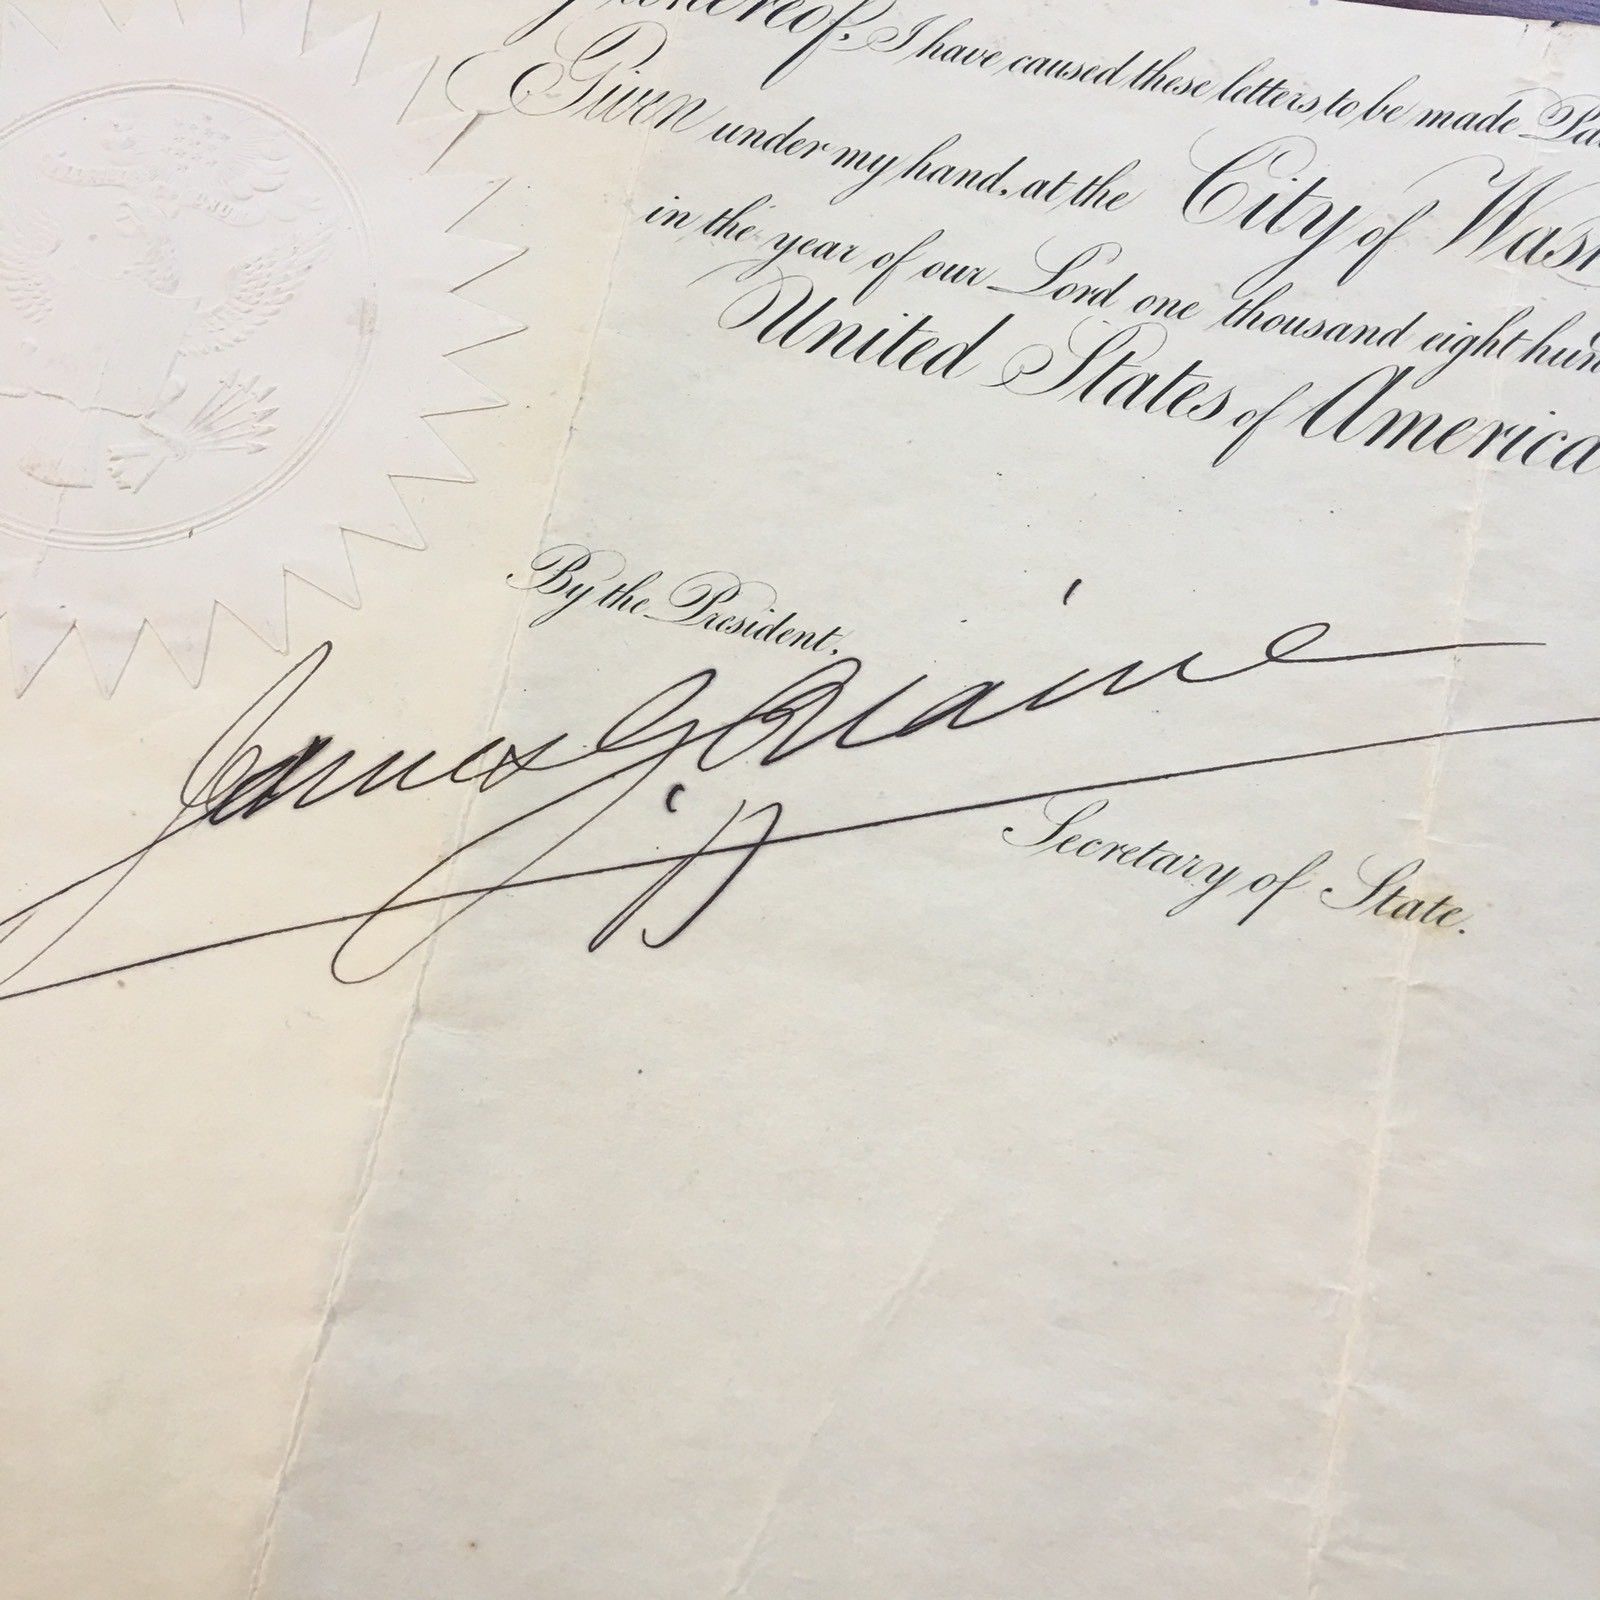 whereof, I have caused these letters to be made
Given under my hand, at the City of
in the year of our Lord one thousand eight
United States of America
By the President,
James G. Blaine
Secretary of State.